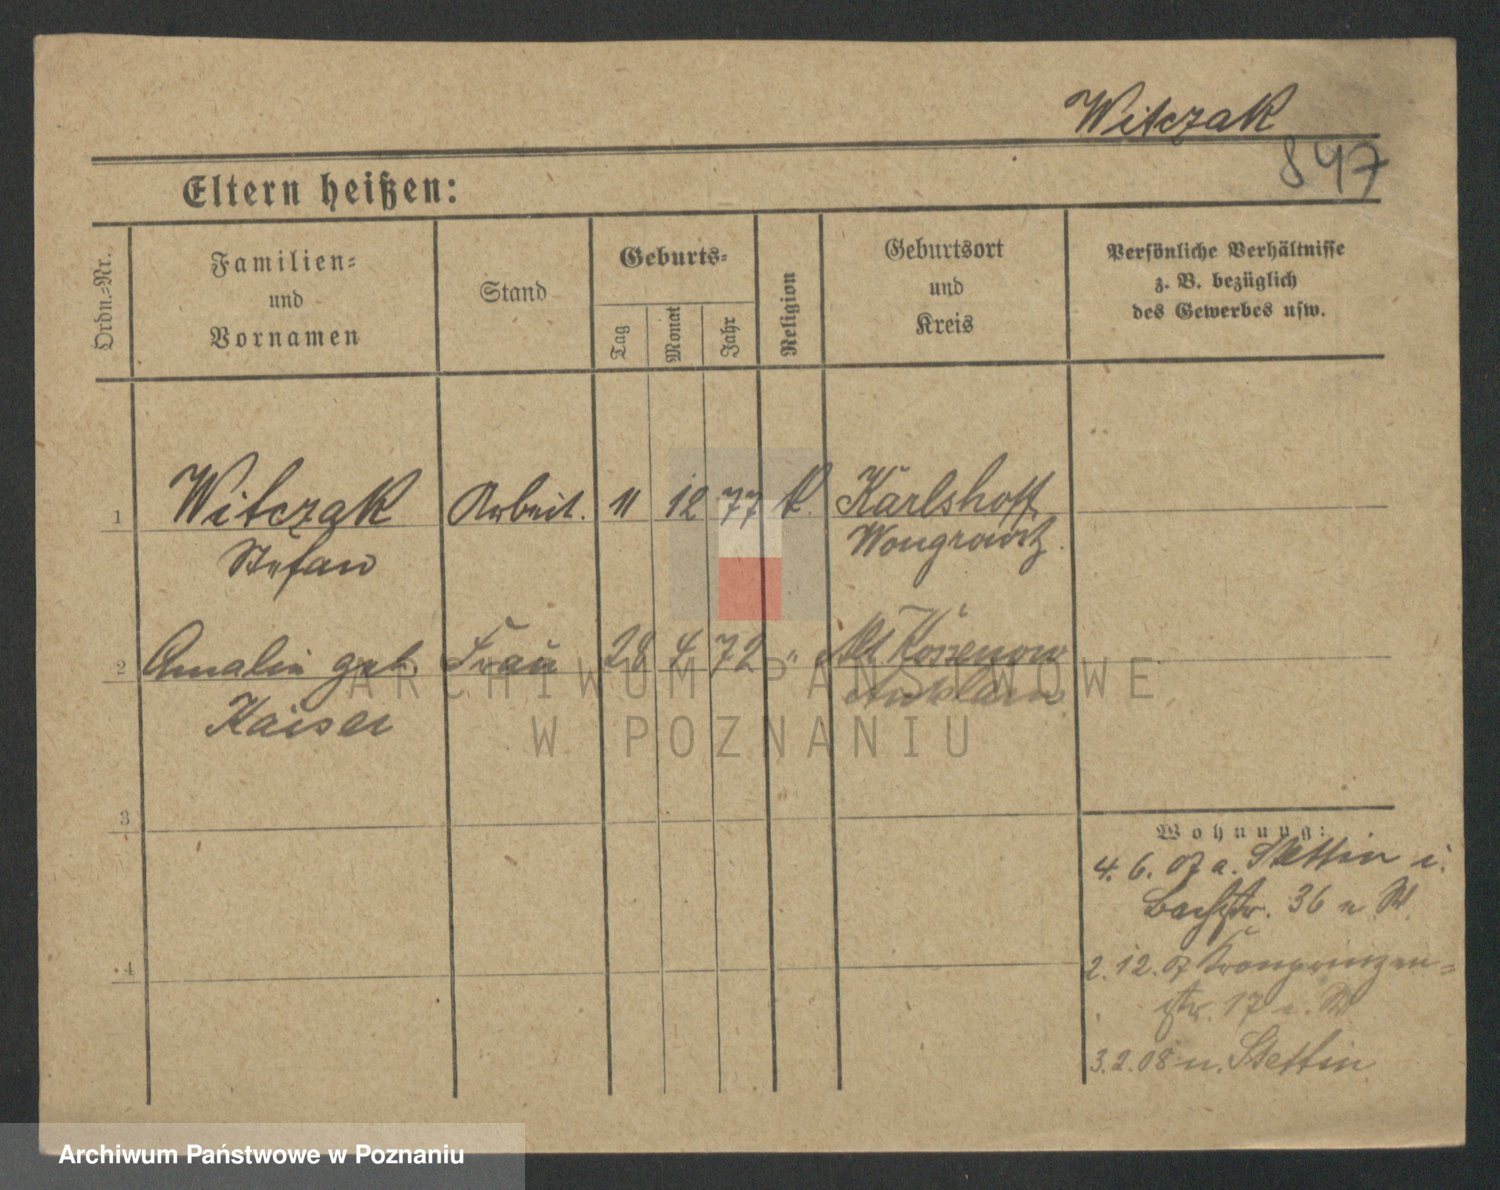 Witczak
847
Eltern heißen:
Ordn.-Nr.
Familien-
und
Vornamen
Stand
Geburts-
Tag
Monat
Jahr
Religion
Geburtsort
und
Kreis
Persönliche Verhältnisse
z. B. bezüglich
des Gewerbes usw.
1 Witczak Arbeit. 11 12 77 k. Karlshoff
Stefan Wongrowitz
2 Amalie geb. Frau 28 4 72 " Alt Kossenow
Kaiser Anklam
3
Wohnung:
4. 6. 07 a. Stettin i.
Bachstr. 36 e W.
4
2. 12. 07 Kronprinzen-
str. 17 e. W
3. 2. 08 n. Stettin
ARCHIWUM PAŃSTWOWE
W POZNANIU
Archiwum Państwowe w Poznaniu